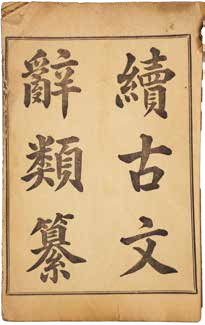 續古文
辭類纂